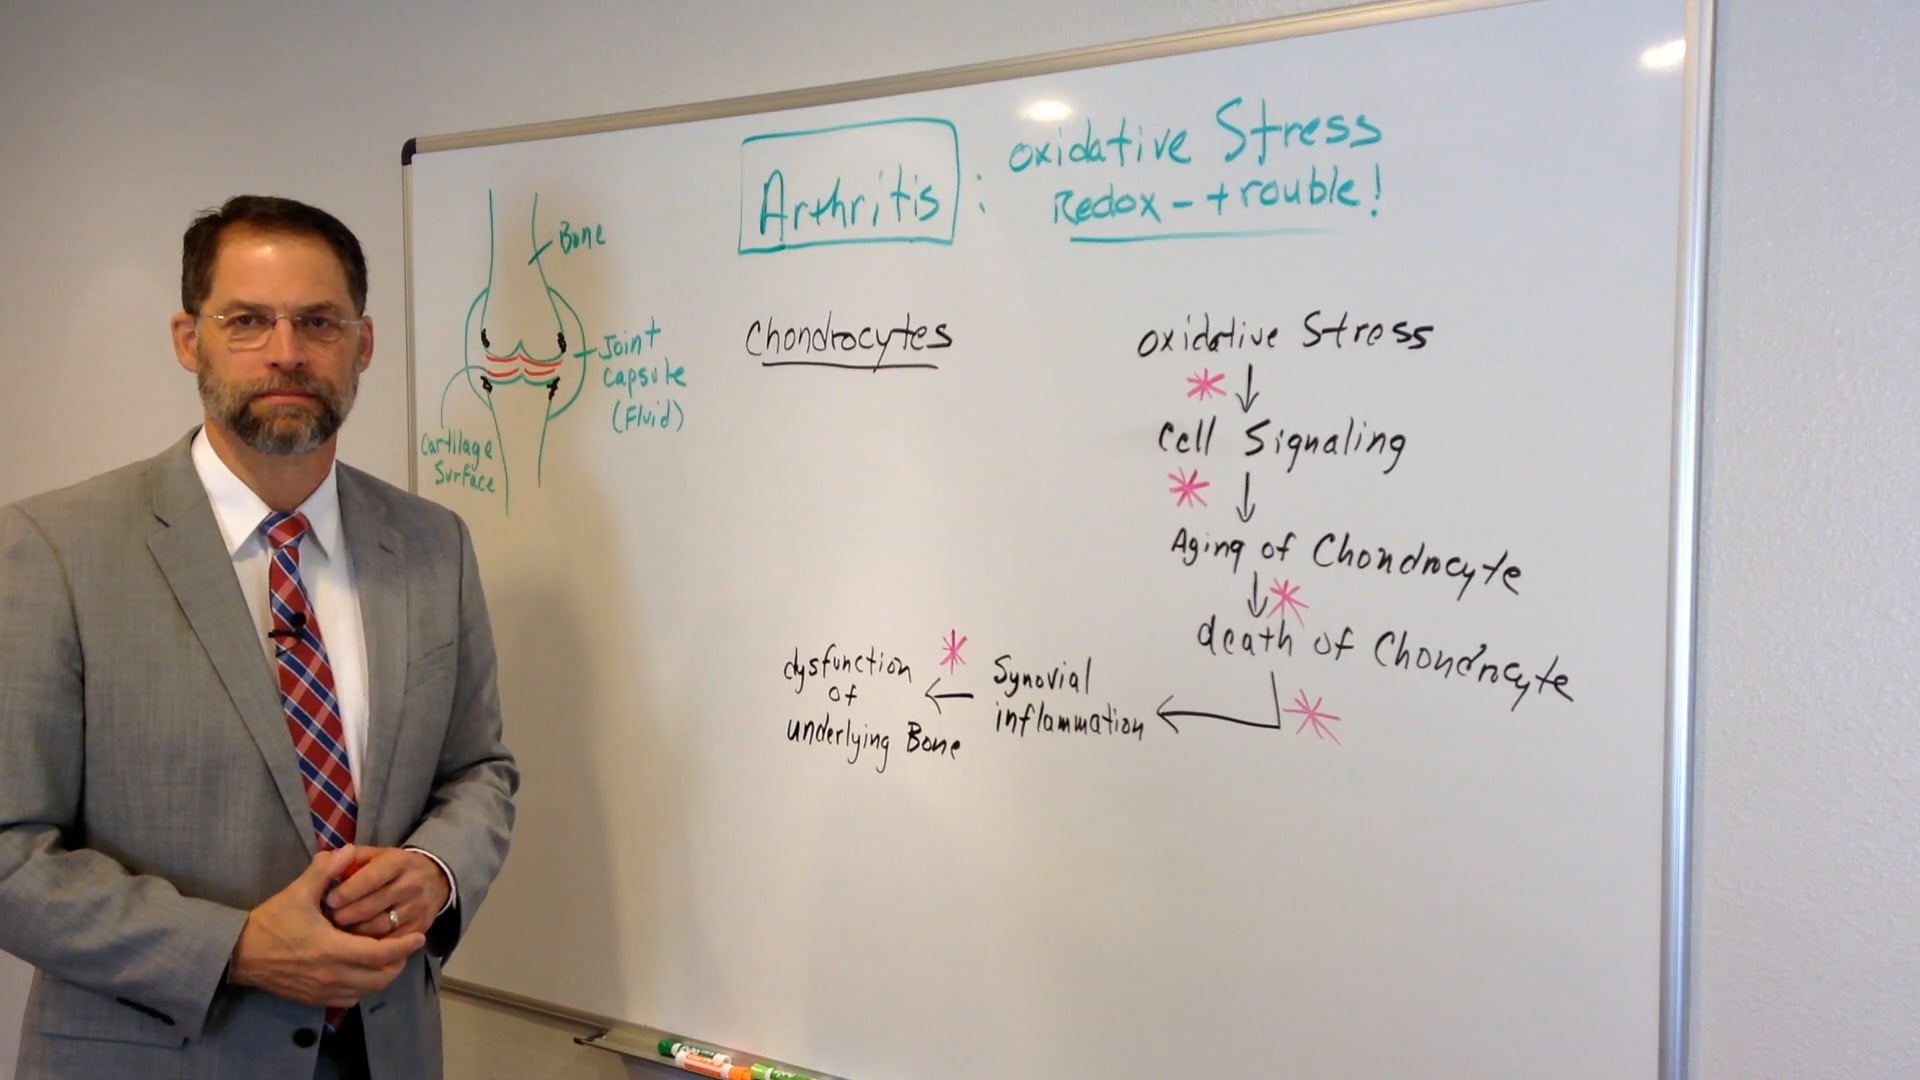 Arthritis : oxidative Stress
Redox - trouble!
Bone
Joint
Capsule
(Fluid)
Cartilage
Surface
Chondrocytes
oxidative Stress
Cell Signaling
Aging of Chondrocyte
death of Chondrocyte
Synovial
inflammation
dysfunction
of
underlying Bone